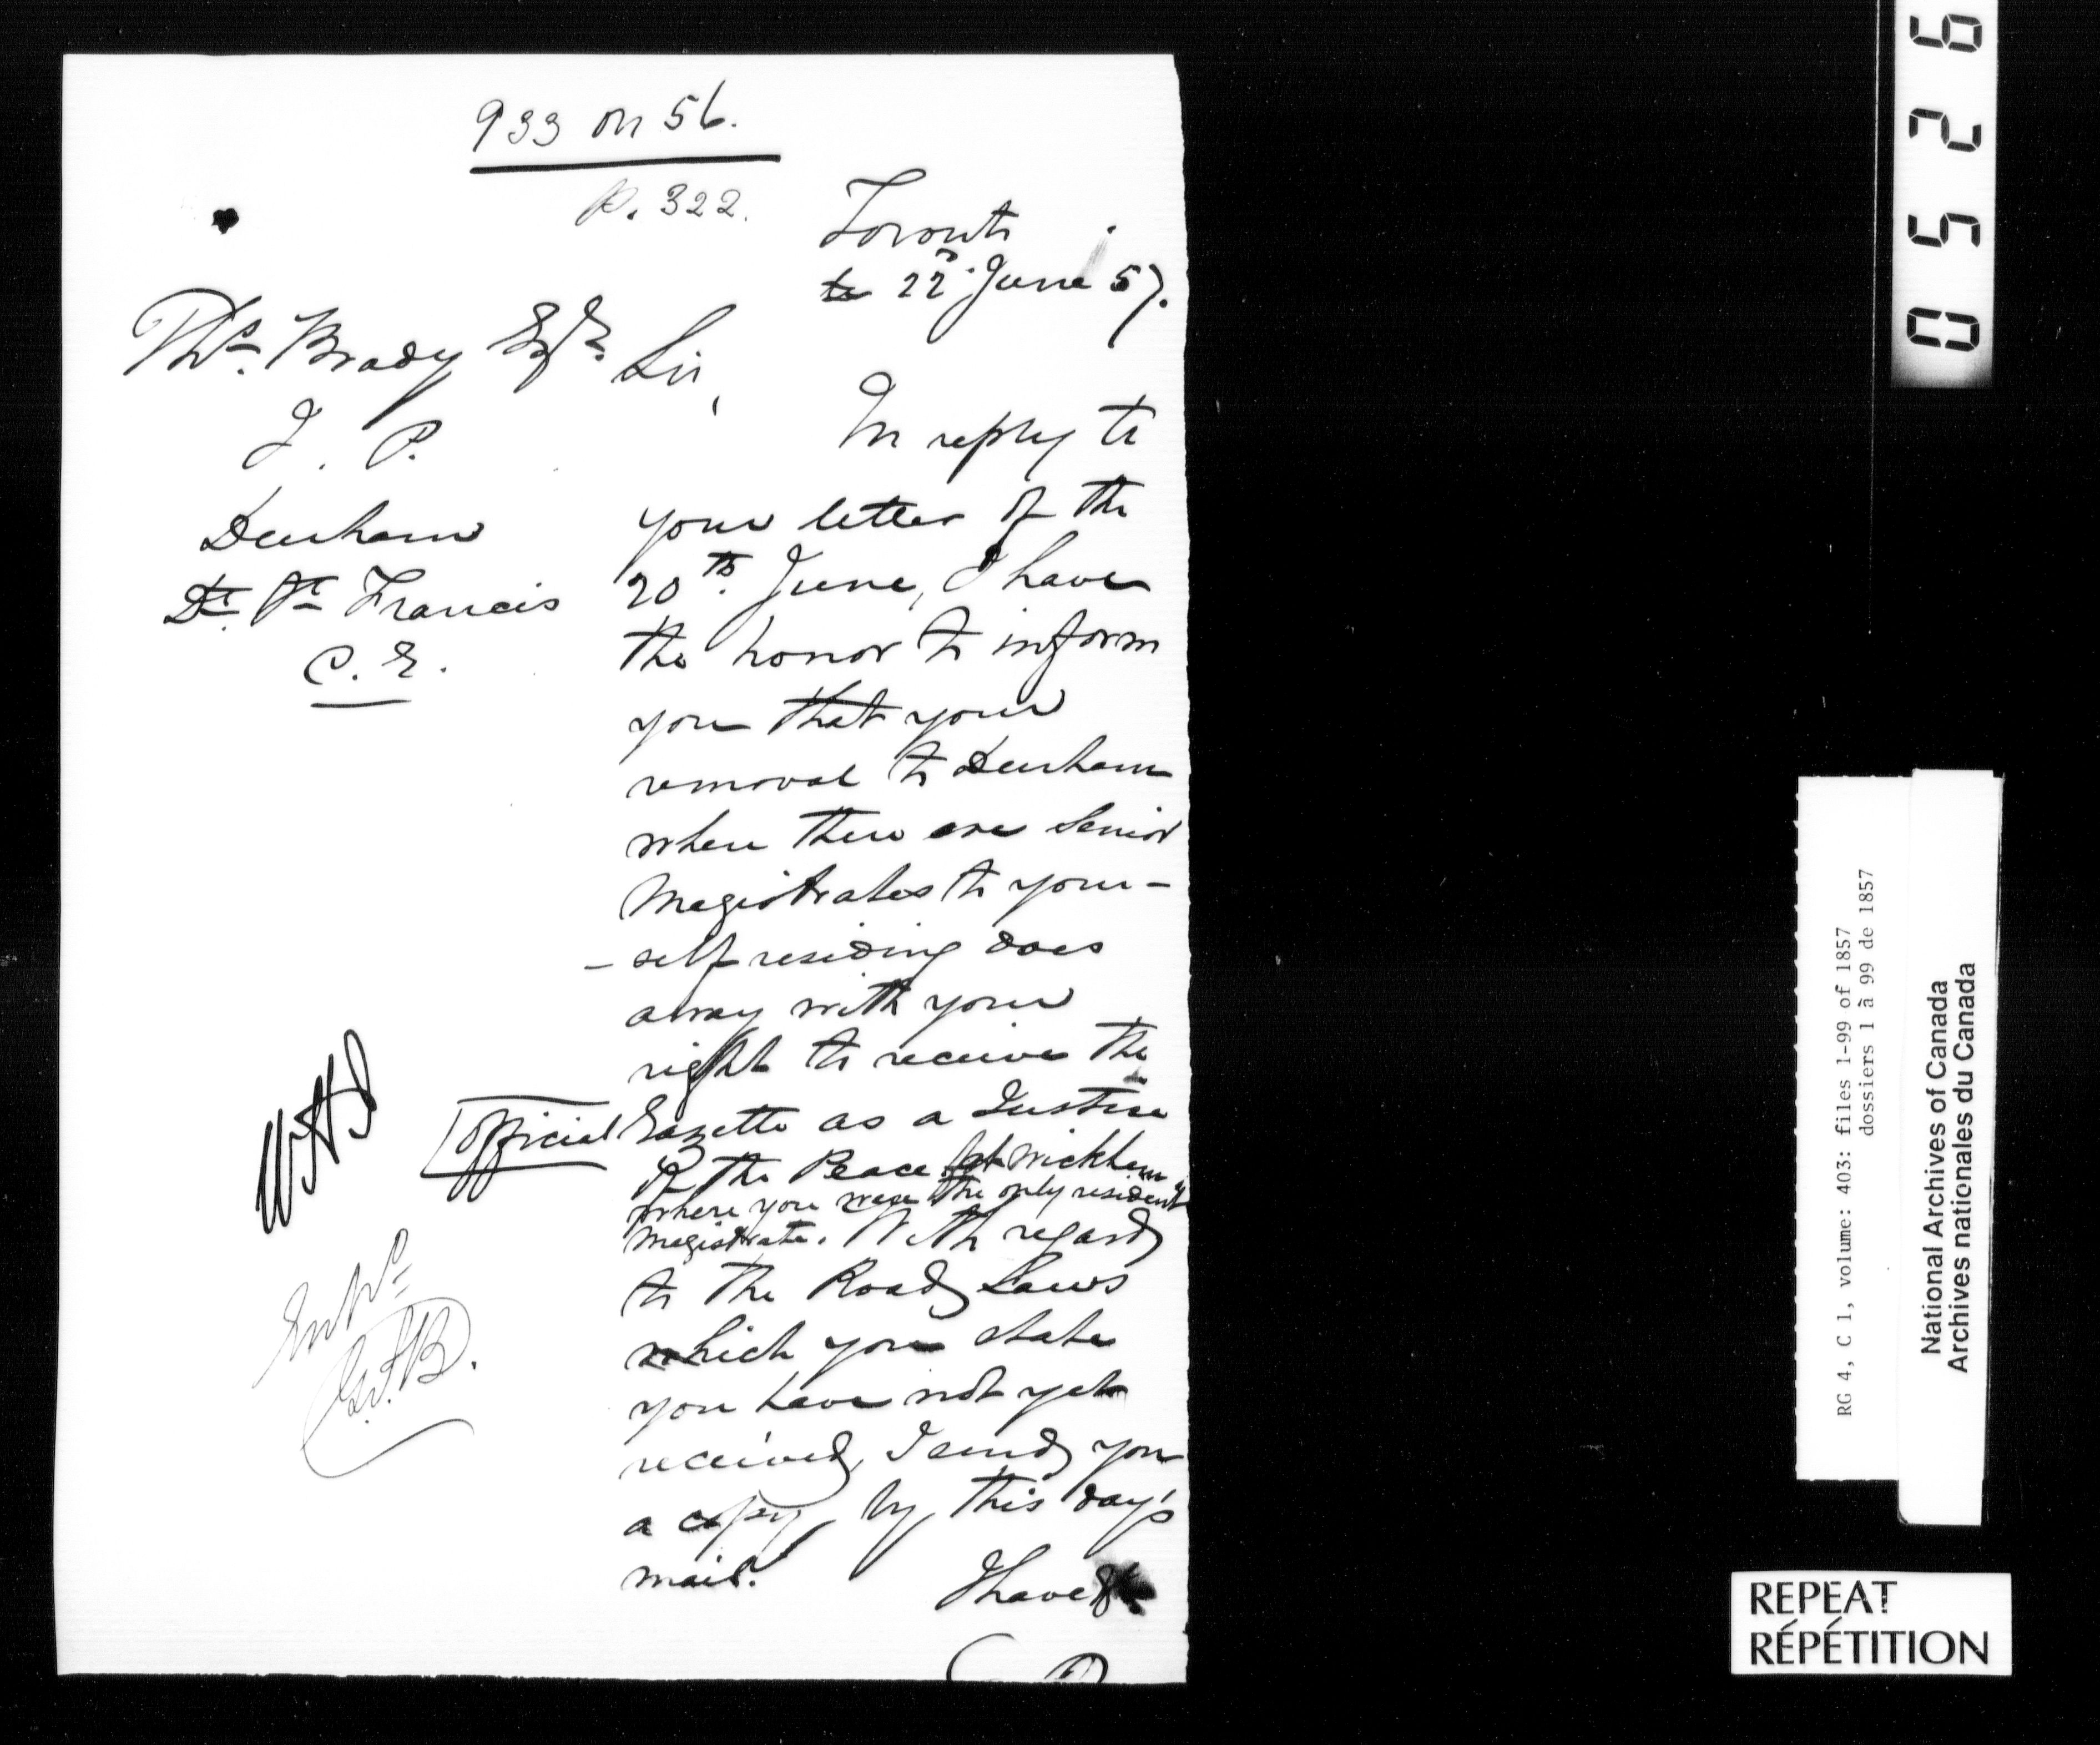 933 on 56.
P. 322.
Toronto
22d June 57.
Thos. Brady Esqr.
J. P.
Durham
Dt. St. Francis
C. E.
Sir,
In reply to
your letter of the
20th. June, I have
the honor to inform
you that your
removal to Durham
where there are senior
Magistrates to your-
-self residing does
away with your
right to receive the
Official Gazette as a Justice
of the Peace at Wickham
where you were the only resident
magistrate. With regard
to the Road Laws
which you state
you have not yet
received, I send you
a copy by this day's
mail.
I have &
Entd.
G.F.B.
0526
RG 4, C 1, volume: 403: files 1-99 of 1857
dossiers 1 à 99 de 1857
National Archives of Canada
Archives nationales du Canada
REPEAT
RÉPÉTITION